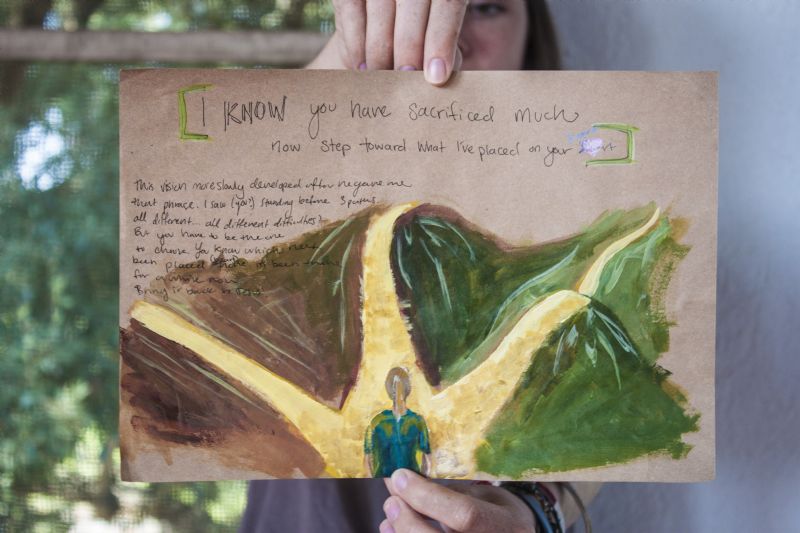 [I KNOW you have sacrificed much
now step toward what I've placed on your ]
This vision more slowly developed after he gave me
that phrase. I saw (you?) standing before 3 paths
all different... all different difficulties?
But you have to be the one
to choose. You know which
been placed been
for a while now
Bring it back to